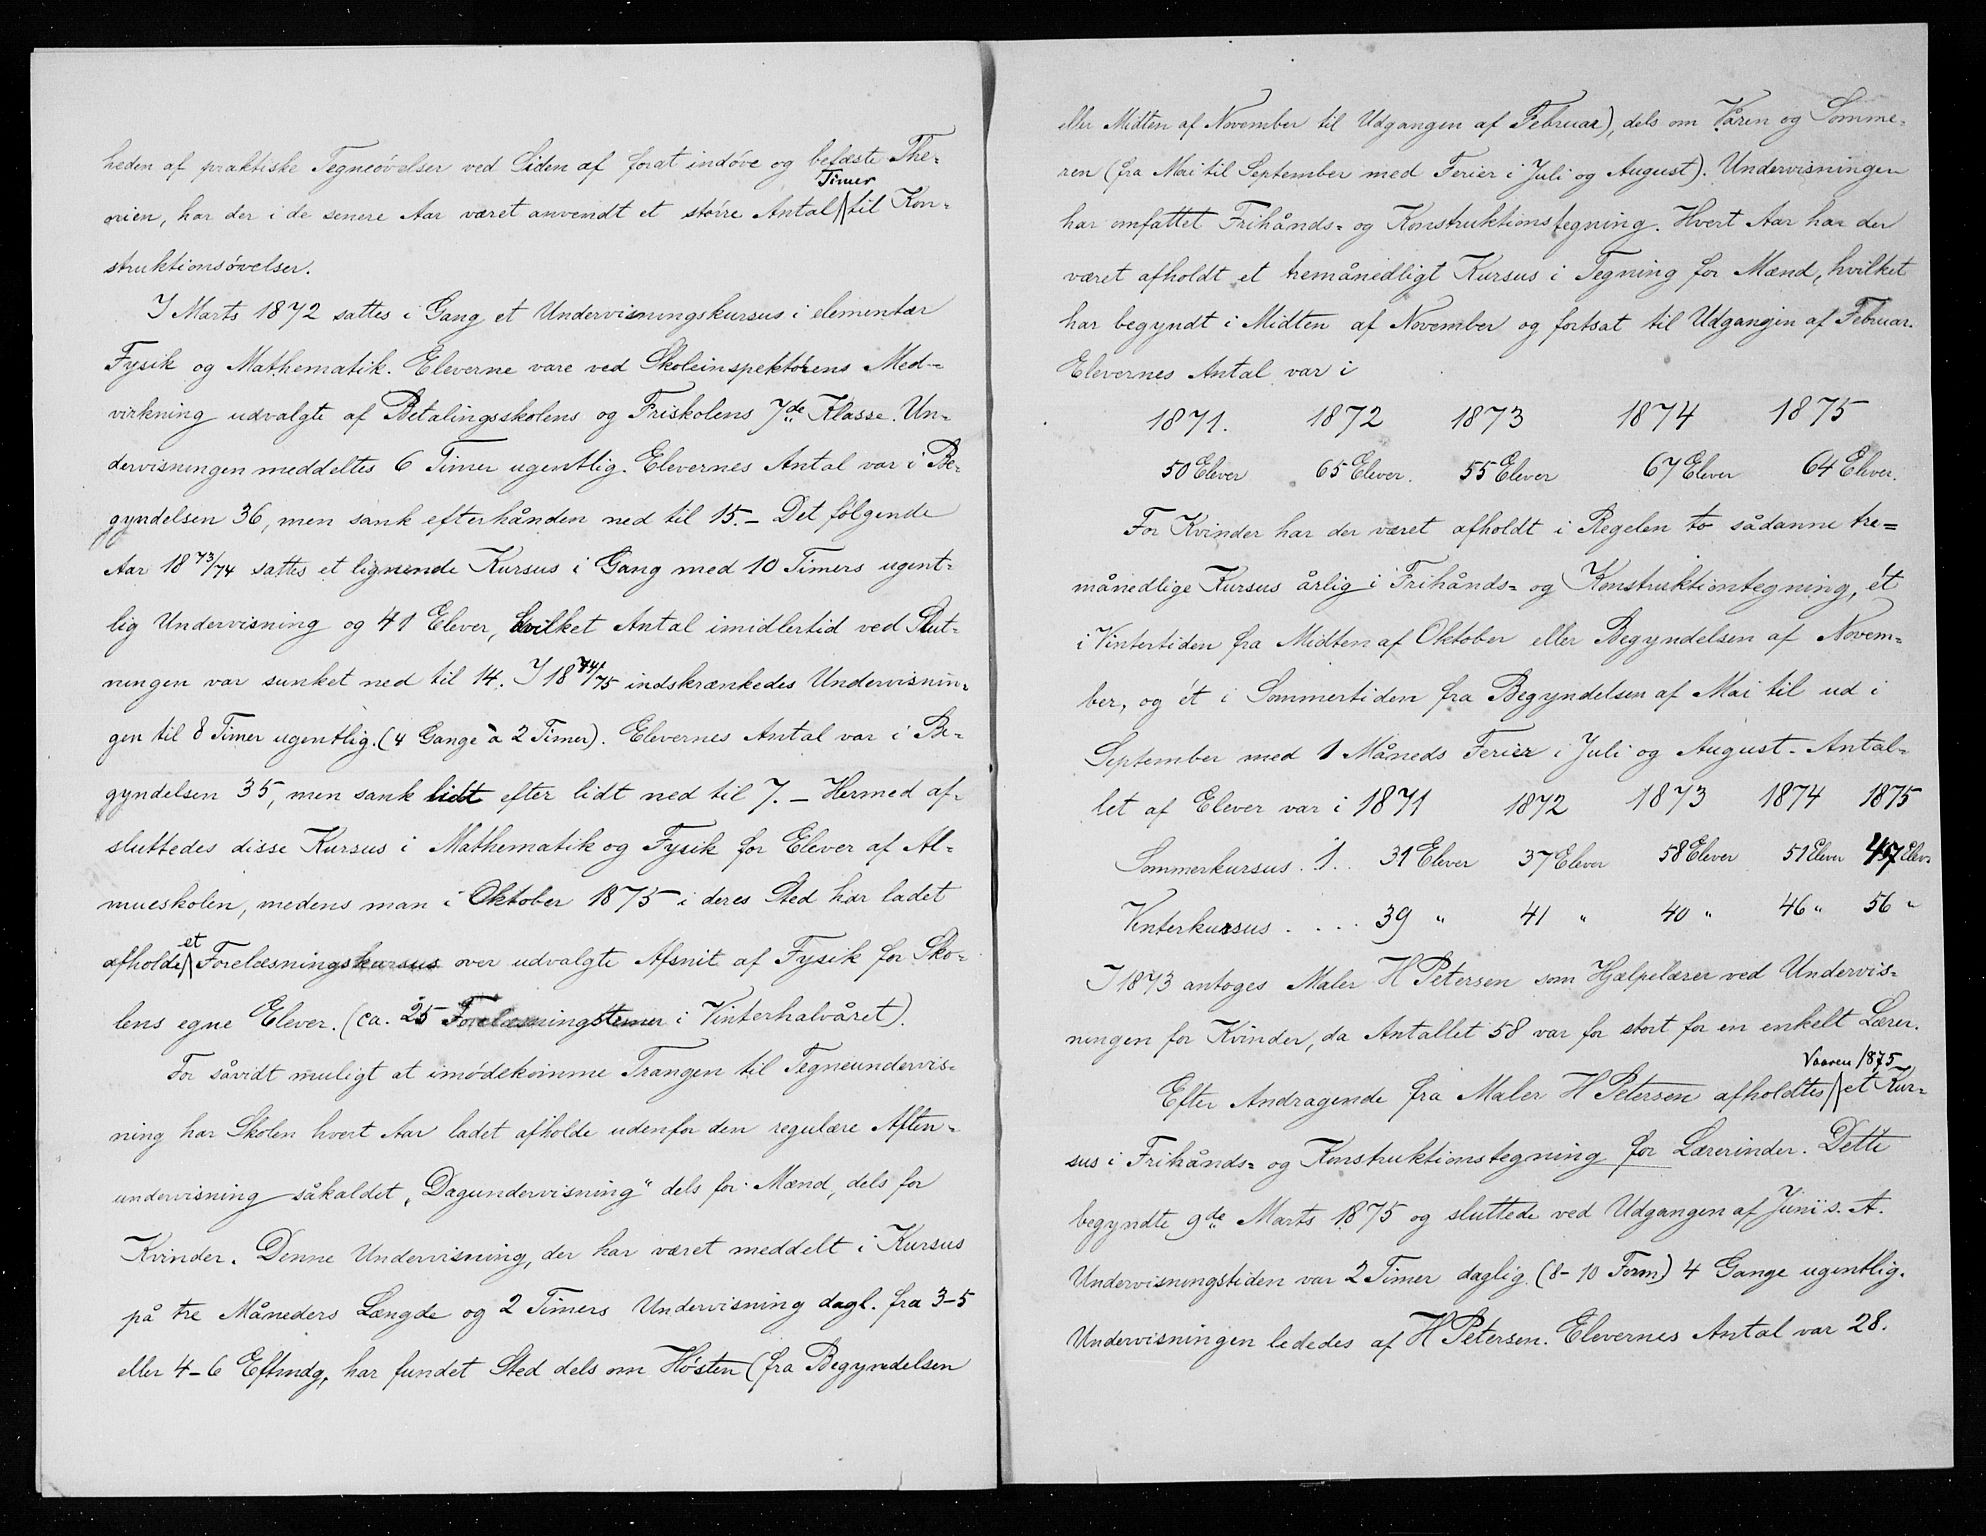 heden af praktiske Tegneövelser ved Siden af forat indöve og befæste The-
Timer
orien, har der i de senere Aar været anvendt et större Antal til Kon-
struktionsövelser.
I Marts 1872 sattes i Gang et Undervisningskursus i elementær
Fysik og Mathematik. Eleverne vare ved Skoleinspektörens Med-
virkning udvalgte af Betalingsskolens og Friskolens 7de Klasse. Un-
dervisningen meddeltes 6 Timer ugentlig. Elevernes Antal var i Be-
gyndelsen 36, men sank efterhånden ned til 15. – Det fölgende
Aar 1873/74 sattes et lignende Kursus i Gang med 10 Timers ugent-
lig Undervisning og 41 Elever, hvilket Antal imidlertid ved Slut-
ningen var sunket ned til 14. I 1874/75 indskrænkedes Undervisnin-
gen til 8 Timer ugentlig. (4 Gange à 2 Timer). Elevernes Antal var i Be-
gyndelsen 35, men sank lidt efter lidt ned til 7. – Hermed af-
sluttedes disse Kursus i Mathematik og Fysik for Elever af Al-
mueskolen, medens man i Oktober 1875 i deres Sted har ladet
et
afholde Forelæsningskursus over udvalgte Afsnit af Fysik for Sko-
lens egne Elever. (ca. 25 Forelæsningstimer i Vinterhalvåret).
For såvidt muligt at imödekomme Trangen til Tegneundervis-
ning har Skolen hvert Aar ladet afholde udenfor den regulære Aften-
undervisning såkaldet „Dagundervisning“ dels for Mænd, dels for
Kvinder. Denne Undervisning, der har været meddelt i Kursus
på tre Måneders Længde og 2 Timers Undervisning dagl. fra 3–5
eller 4–6 Eftmdg, har fundet Sted dels om Hösten (fra Begyndelsen
eller Midten af November til Udgangen af Februar), dels om Våren og Somme-
ren (fra Mai til September med Ferier i Juli og August). Undervisningen
har omfattet Frihånds- og Konstruktionstegning. Hvert Aar har der
været afholdt et tremånedligt Kursus i Tegning for Mænd, hvilket
har begyndt i Midten af November og fortsat til Udgangen af Februar.
Elevernes Antal var i
1871. 1872 1873 1874 1875
50 Elever 65 Elever. 55 Elever 67 Elever 64 Elever.
For Kvinder har der været afholdt i Regelen to sådanne tre-
månedlige Kursus årlig i Frihånds- og Konstruktiontegning, ét
i Vintertiden fra Midten af Oktober eller Begyndelsen af Novem-
ber, og ét i Sommertiden fra Begyndelsen af Mai til ud i
September med 1 Måneds Ferier i Juli og August. Antal-
let af Elever var i 1871 1872 1873 1874 1875
Sommerkursus . . . 31 Elever 37 Elever 58 Elever 51 Elever Elev.
Vinterkursus . . . . 39 " 41 " 40 " 46 " 56 "
I 1873 antoges Maler H Petersen som Hjælpelærer ved Undervis-
ningen for Kvinder, da Antallet 58 var for stort for en enkelt Lærer.
Vaaren 1875
Efter Andragende fra Maler H Petersen afholdtes et Kur-
sus i Frihånds- og Konstruktionstegning for Lærerinder. Dette
begyndte 9de Marts 1875 og sluttede ved Udgangen af Juni s. A.
Undervisningstiden var 2 Timer daglig (8–10 Form) 4 Gange ugentlig.
Undervisningen lededes af H Petersen. Elevernes Antal var 28.